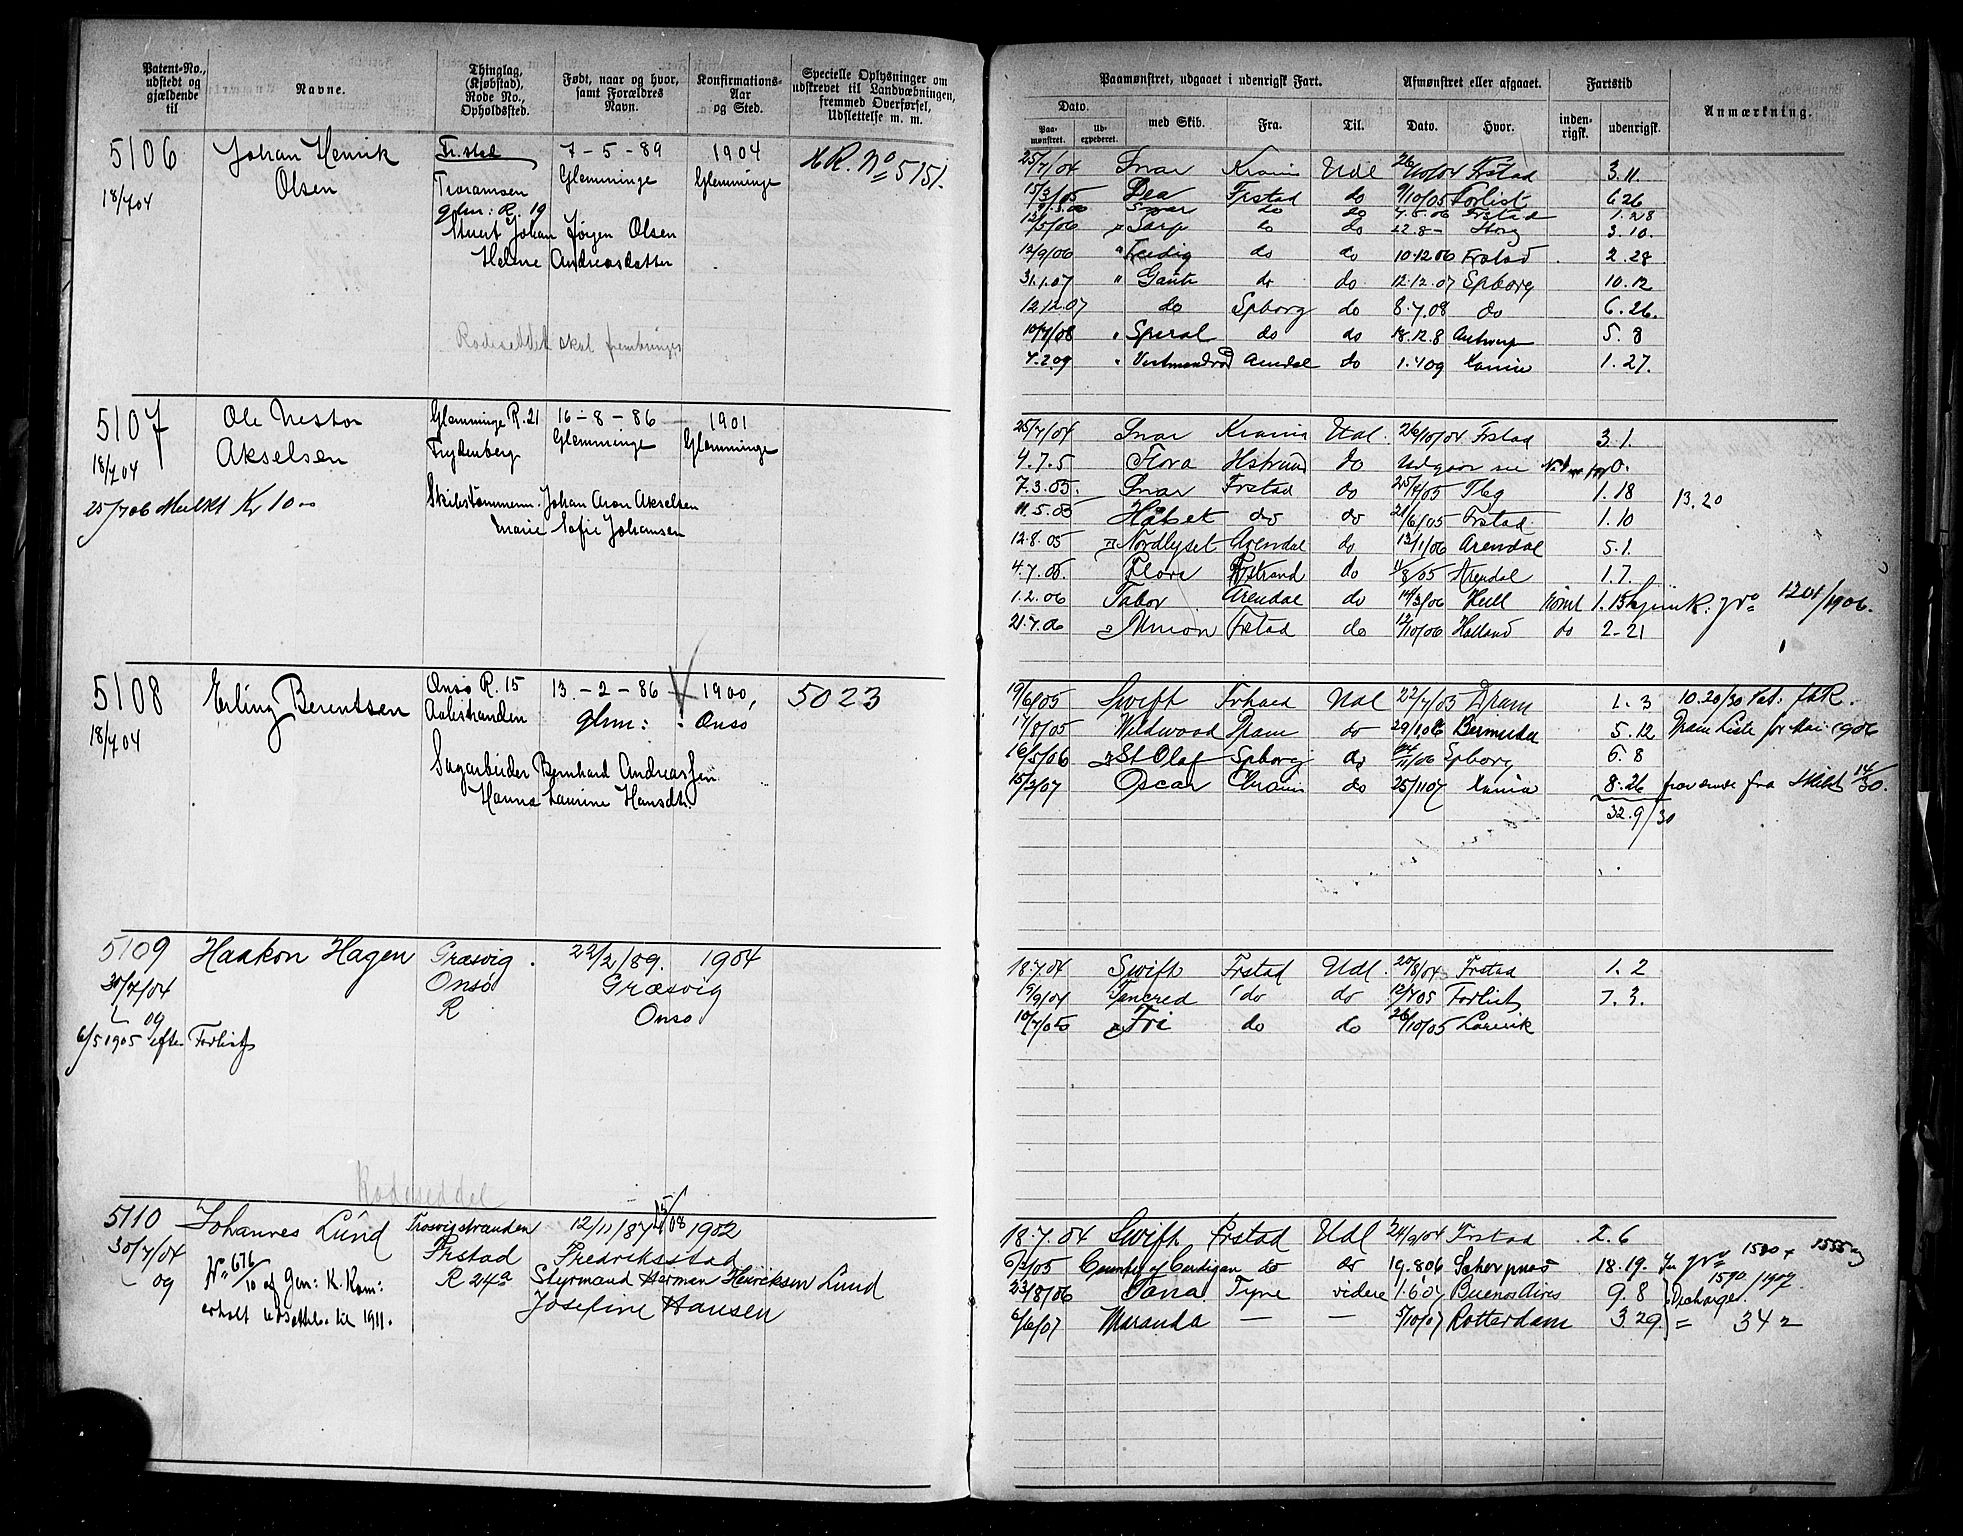 Patent-No., udstedt og gjældende til
Navne.
Thinglag, (Kjøbstad), Rode No., Opholdssted.
Født, naar og hvor, samt Forældres Navn.
Konfirmations-Aar og Sted.
Specielle Oplysninger om udskrevet til Landvæbningen, fremmed Overførsel, Udslettelse m. m.
5106
Johan Henrik
Olsen
18/7 04
Fr.stad
Glm: R. 19
7-5-89
Glemminge
1904
Glemminge
R. No 5151.
Johan Jørgen Olsen
Helene Andreasdatter
Rodeseddel skal frembringes
5107
Ole Nestor
Akselsen
18/7 04
25/7 06 Mulkt Kr 10
Glemminge R. 21
Trydenberg
16-8-86
Glemminge
1901
Glemminge
Skibstømmerm. Johan Aron Akselsen
Marie Sofie Johansen
5108
Erling Berentsen
18/7 04
Onsø R. 15
13-2-86
Glm:
1900,
Onsø
5023
Sagarbeider Bernhard Andreassen
Hanna Laurine Hansdtr.
5109
Haakon Hagen
30/7/04
09
6/5 1905 efter Forlist
Græsvig
Onsø
R
22/2/89.
Græsvig
Onsø
1904
Rodeseddel
5110
Johannes Lund
30/7/04
09
No 676/10 af Gen: K. Kom:
erholdt Udsættelse til 1911.
Trosvigstranden
Frstad
R 24a
12/11/87
Fredriksstad
15/4 08
1902
Styrmand Herman Henriksen Lund
Josefine Hansen
Paamønstret, udgaaet i udenrigsk Fart.
Afmønstret eller afgaaet.
Fartstid
Anmærkning.
Dato.
Paamønstret.
Udexpederet.
med Skib.
Fra.
Til.
Dato.
Hvor.
indenrigsk.
udenrigsk.
25/7/04 Snar Krania Udl 26/10/04 Frstad 3.11
15/3/05 Dea Frstad do 9/10/05 Forlist 6.26
Snar do do 4.5.06 Frstad 1.28
12/5/06 Sarp do do 22.8- 3.10.
12/9/06 Ferdig do do 10.12 06 Frstad 2.28
31.1.07 Gaute do do 12.12.07 Spborg 10.12
12.12.07 do Spborg do 8.7.08 do 6.26.
10/7/08 Speral do do 18.12.8 Antwerp 5.8
4.2.09 Arendal do 1.4 09 Xania 1.27.
25/7/04 Snar Krania Udl. 26/10/04 Frstad 3.1.
4.7.5 Flora do Udgaar
7.3.05. Snar Frstad do 25/4/05 Tbg 1.18 13.20
11.5.05 Haabet do do 21/6/05 Frstad 1.10
12.8.05 Nordlyset Arendal do 13/1/06 Arendal 5.1.
4.7.05. Flora do 11/8/05 Arendal 1.7.
1.2.06 Tabor Arendal do 14/3/06 Hull 1.13 No 1204/1906.
21.7.06 Union Frstad do 12/10/06 Holland do 2-21
19/6/05 Swift Udl 22/7/05 Dram 1.3 10.20/30
17/8/05 Wildwood Dram do 29/1 06 Bermuda 5.12 Dram Liste for Mai 1906
16/5/06 St Olaf Spborg do Spborg 6.8
15/2/07 Oscar do 25/11 07 Xania 8.26 14/30.
32.9/30
18.7.04 Swift Frstad Udl. 20/8/04 Frstad 1.2
19/9/04 Tancred do do 12/4 05 Forlist 7.3.
10/7/05 Fri do do 26/10/05 Larvik
18.7.04 Swift Frstad Udl 24/9/04 Frstad 2.6
County of Cardigan do do 19.8 06 18.19.
23/8/06 Tana Tyne videre 1.6.07 Buenos Aires 9.8 Discharge 1590/1907.
6/6/07 Maranda — — 5/10/07 Rotterdam 3.29 = 342